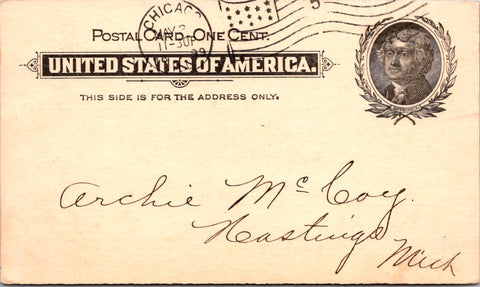 CHICAGO
5
11-30P
POSTAL CARD-ONE CENT.
UNITED STATES OF AMERICA.
THIS SIDE IS FOR THE ADDRESS ONLY.
JEFFERSON
Archie McCoy.
Hastings
Mich